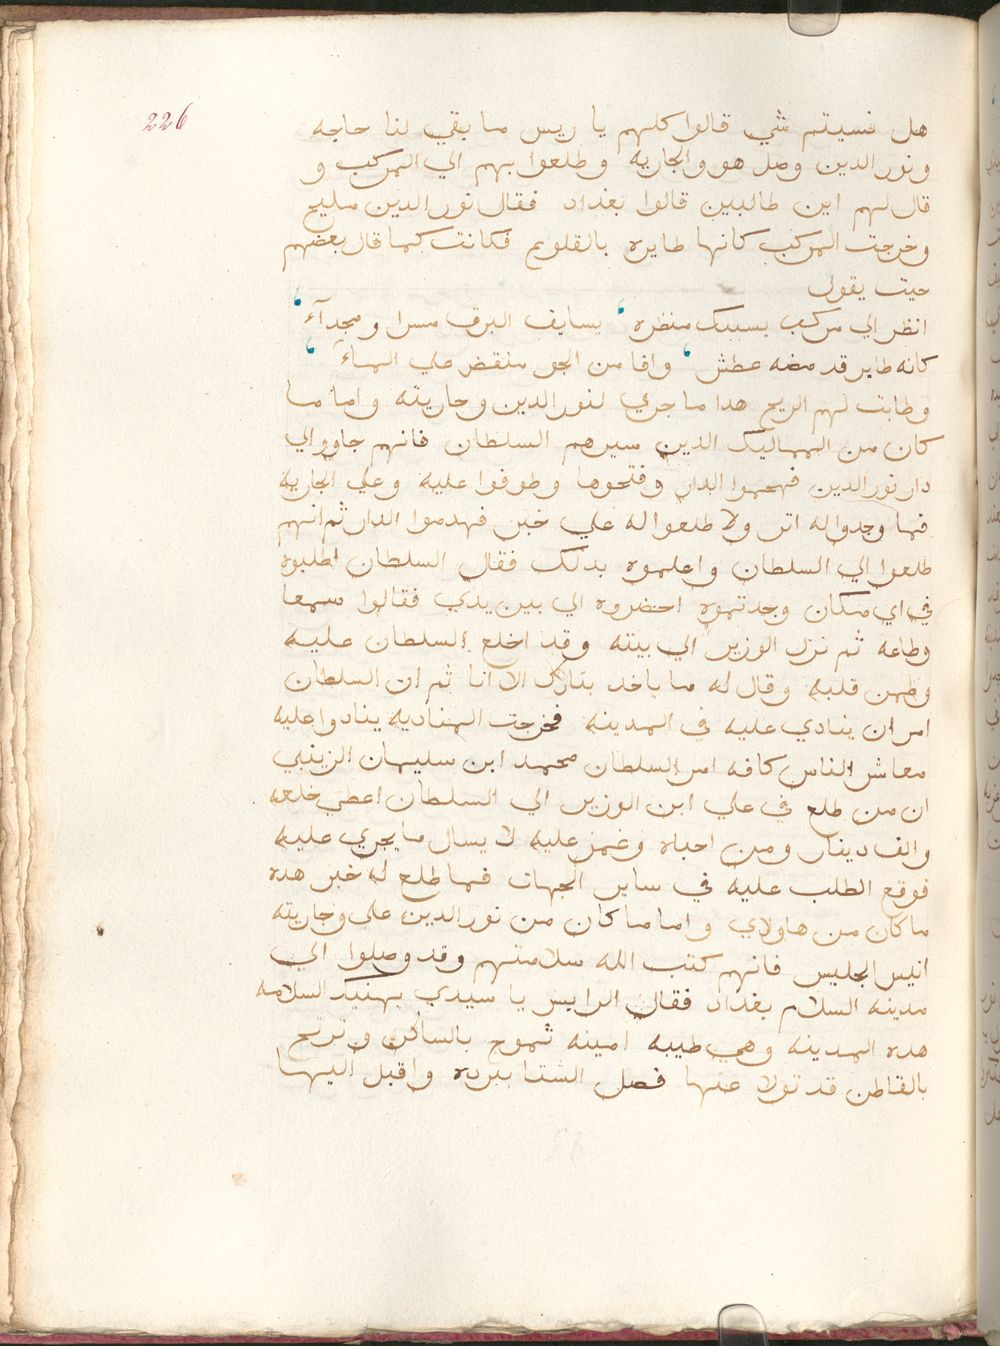 226
هل نسيتم شي قالوا كلهم يا ريس ما بقي لنا حاجه
ونور الدين وصل هو والجاريه وطلعوا بهم الي المركب و
قال لهم اين طالبين قالوا بغداد فقال نور الدين مليح
وخرجت المركب كانها طايره بالقلوع فكانت كما قال بعضهم
حيت يقول
انظر الي مركب يسبيك منظره يسايف البرق مسرا ومجدآء
كانه طاير قد مضه عطش وافا من الجو منقض علي المآء
وطابت لهم الريح هدا ما جري لنور الدين وجاريته واما ما
كان من المماليك الدين سيرهم السلطان فانهم جاووالي
دار نور الدين فهجموا الدار وفتحوها وطوفوا عليه وعلي الجاريه
فما وجدوا له اتر ولا طلعوا له علي خبر فهدموا الدار ثم انهم
طلعوا الي السلطان واعلموه بدلك فقال السلطان اطلبوه
في اي مكان وجدتموه احضروه الي بين يدي فقالوا سمعا
وطاعه ثم نزل الوزير الي بيته وقد اخلع السلطان عليه
وطمن قلبه وقال له ما ياخد بتارك الا انا ثم ان السلطان
امر ان ينادي عليه في المدينه فخرجت المناديه ينادوا عليه
معاشر الناس كافه امر السلطان محمد ابن سليمان الزينبي
ان من طلع في علي ابن الوزير الي السلطان اعطي خلعه
والف دينار ومن احباه وغمز عليه لا يسال ما يجري عليه
فوقع الطلب عليه في ساير الجهات فما طلع له خبر هده
ما كان من هاولاي واما ما كان من نور الدين علي وجاريته
انيس الجليس فانهم كتب الله سلامتهم وقد وصلوا الي
مدينه السلام بغداد فقال الرايس يا سيدي يهنيك السلامه
هده المدينه وهي طيبه امينه تموج بالساكن وترتج
بالقاطن قد تولا عنها فصل الشتا ببرده واقبل اليها